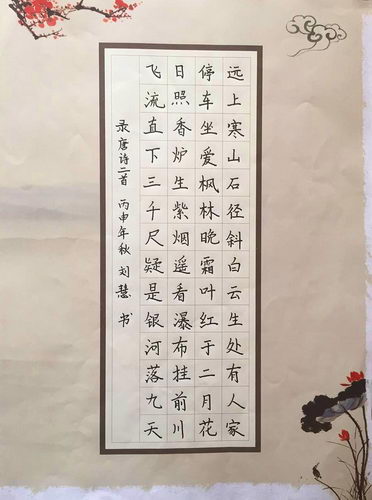 远上寒山石径斜白云生处有人家
停车坐爱枫林晚霜叶红于二月花
日照香炉生紫烟遥看瀑布挂前川
飞流直下三千尺疑是银河落九天
录唐诗二首 丙申年秋 刘慧 书